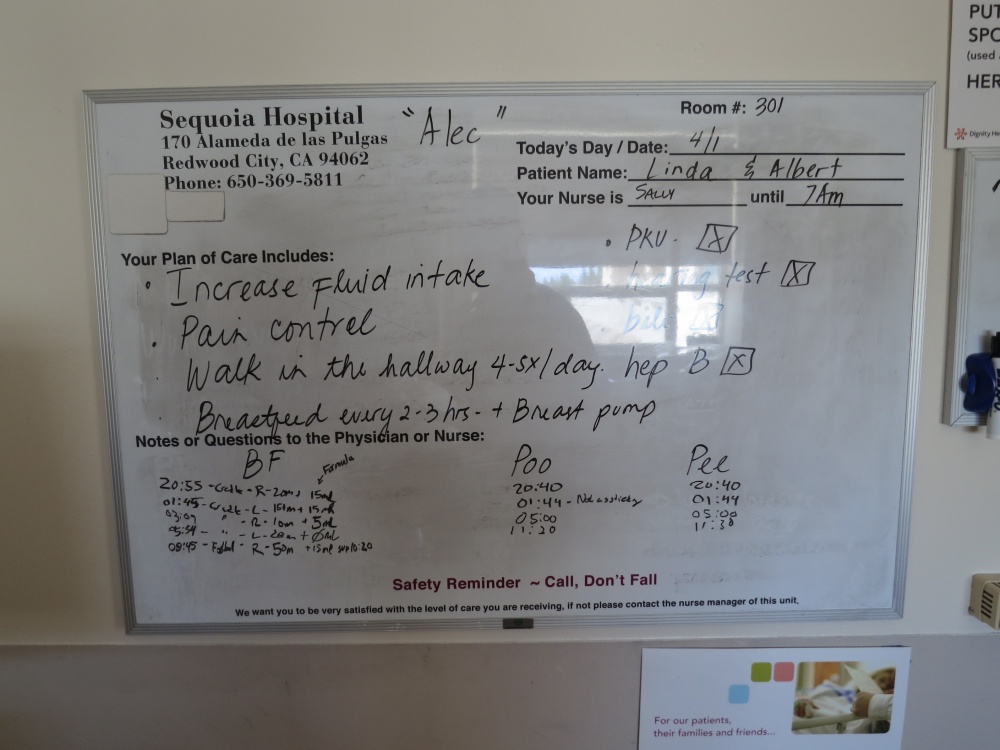 Sequoia Hospital
170 Alameda de las Pulgas
Redwood City, CA 94062
Phone: 650-369-5811
"Alec"
Room #: 301
Today's Day / Date: 4/1
Patient Name: Linda & Albert
Your Nurse is SALLY until 7Am
• PKU. [X]
hearing test [X]
bili
hep B [X]
Your Plan of Care Includes:
• Increase Fluid intake
• Pain control
• Walk in the hallway 4-5x/day.
• Breastfeed every 2-3 hrs- + Breast pump
Notes or Questions to the Physician or Nurse:
BF
Formula
20:55 - Cradle - R - 20m 15mL
01:45 - Cradle - L - 15m + 15mL
03:09 " - R - 10m + 5mL
05:54 - " - L - 20m + 0mL
08:45 - Futbol - R - 50m +15ml 10:20
Poo
20:40
01:44 - Not as sticky
05:00
11:20
Pee
20:40
01:44
05:00
11:30
Safety Reminder ~ Call, Don't Fall
We want you to be very satisfied with the level of care you are receiving, if not please contact the nurse manager of this unit.
PUT
SPO
(used
HER
Dignity He
For our patients,
their families and friends...